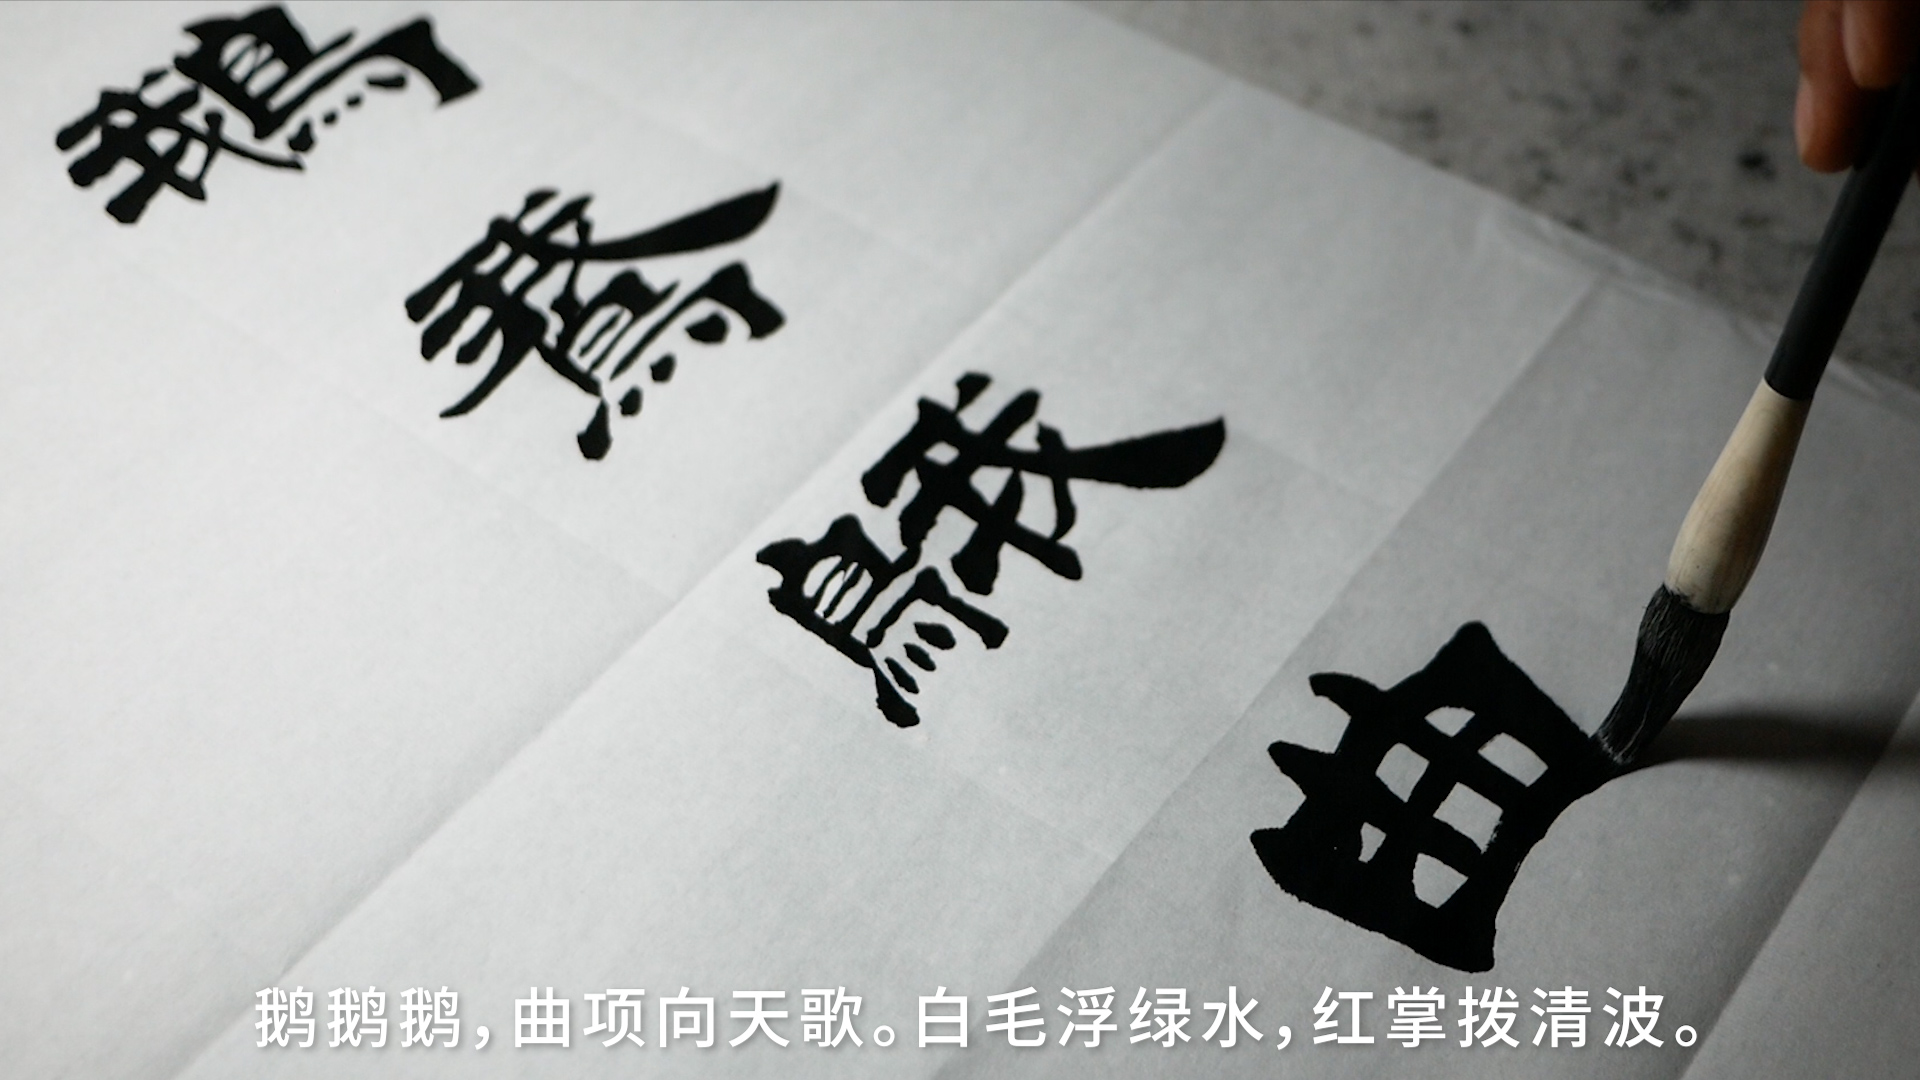 鵝
鵞
䳘
曲
鹅鹅鹅，曲项向天歌。白毛浮绿水，红掌拨清波。